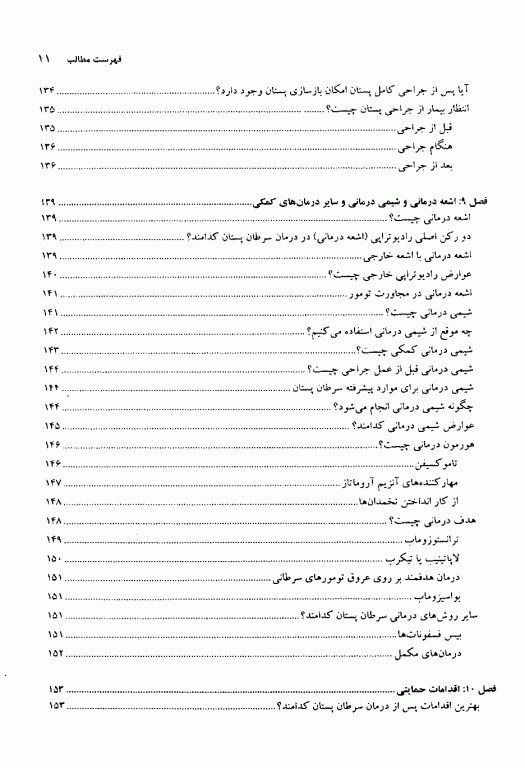 فهرست مطالب ۱۱
آیا پس از جراحی کامل پستان امکان بازسازی پستان وجود دارد؟ ۱۳۴
انتظار بیمار از جراحی پستان چیست؟ ۱۳۵
قبل از جراحی ۱۳۵
هنگام جراحی ۱۳۶
بعد از جراحی ۱۳۶
فصل ۹: اشعه درمانی و شیمی درمانی و سایر درمان‌های کمکی ۱۳۹
اشعه درمانی چیست؟ ۱۳۹
دو رکن اصلی رادیوتراپی (اشعه درمانی) در درمان سرطان پستان کدامند؟ ۱۳۹
اشعه درمانی با اشعه خارجی ۱۳۹
عوارض رادیوتراپی خارجی چیست؟ ۱۴۰
اشعه درمانی در مجاورت تومور ۱۴۱
شیمی درمانی چیست؟ ۱۴۱
چه موقع از شیمی درمانی استفاده می‌کنیم؟ ۱۴۲
شیمی درمانی کمکی چیست؟ ۱۴۳
شیمی درمانی قبل از عمل جراحی چیست؟ ۱۴۴
شیمی درمانی برای موارد پیشرفته سرطان پستان ۱۴۴
چگونه شیمی درمانی انجام می‌شود؟ ۱۴۴
عوارض شیمی درمانی کدامند؟ ۱۴۵
هورمون درمانی چیست؟ ۱۴۶
تاموکسیفن ۱۴۶
مهارکننده‌های آنزیم آروماتاز ۱۴۷
از کار انداختن تخمدان‌ها ۱۴۸
هدف درمانی چیست؟ ۱۴۸
ترانستوزوماب ۱۴۹
لاپاتینیب یا تیکرب ۱۵۰
درمان هدفمند بر روی عروق تومورهای سرطانی ۱۵۱
بواسیزوماب ۱۵۱
سایر روش‌های درمانی سرطان پستان کدامند؟ ۱۵۱
بیس فسفونات‌ها ۱۵۱
درمان‌های مکمل ۱۵۲
فصل ۱۰: اقدامات حمایتی ۱۵۳
بهترین اقدامات پس از درمان سرطان پستان کدامند؟ ۱۵۳